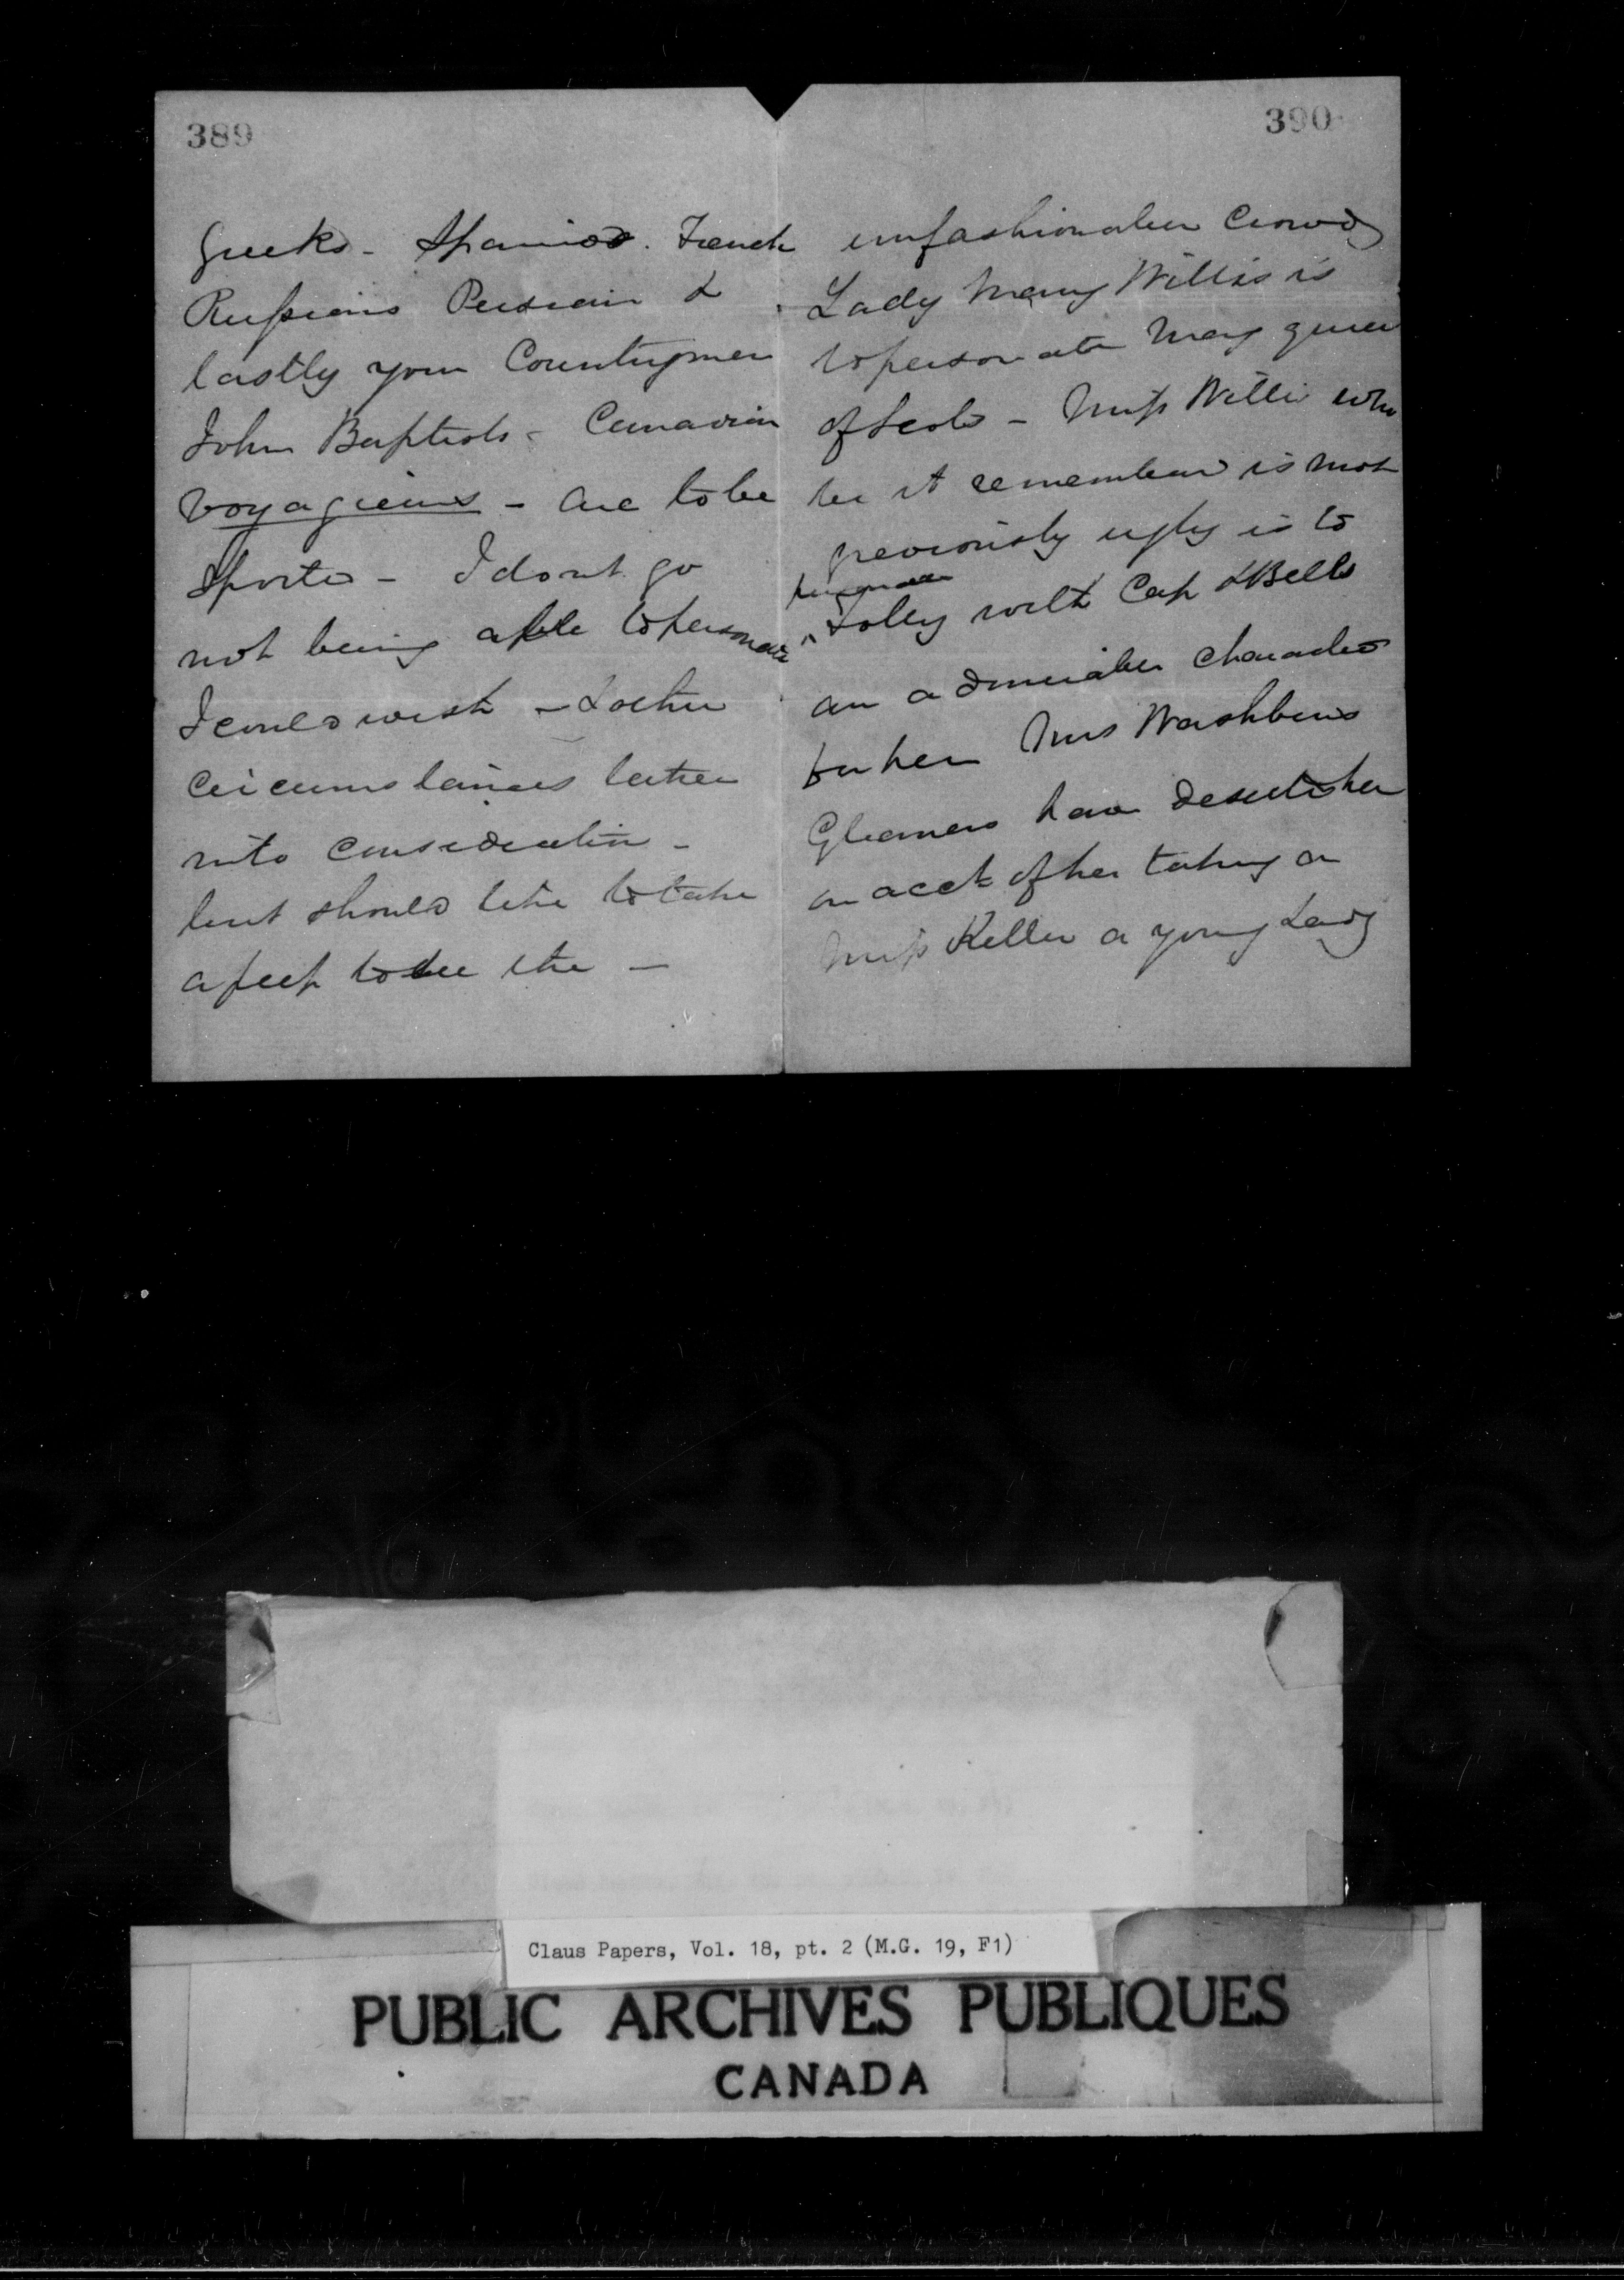 389
Greeks - Spaniards. French
Russians Persian &
lastly your Countrymen
John Baptists - Canadian
voyagieurs - are to be
Sported - I do not go
not being able to personate
I could wish - & other
circumstances taken
into consideration -
but should like to take
a peep to see the -
390
unfashionable Crowd
Lady Mary Willis is
to personate Mary queen
of Scots - Miss Willis who
be it remembered is most
previously ugly is to
personate
Folly with Cap & Bells
an admirable Character
for her Mrs Washburns
Gleaners have deserted her
on acct of her taking a
Miss Keller a young Lady
Claus Papers, Vol. 18, pt. 2 (M.G. 19, F1)
PUBLIC ARCHIVES PUBLIQUES
CANADA